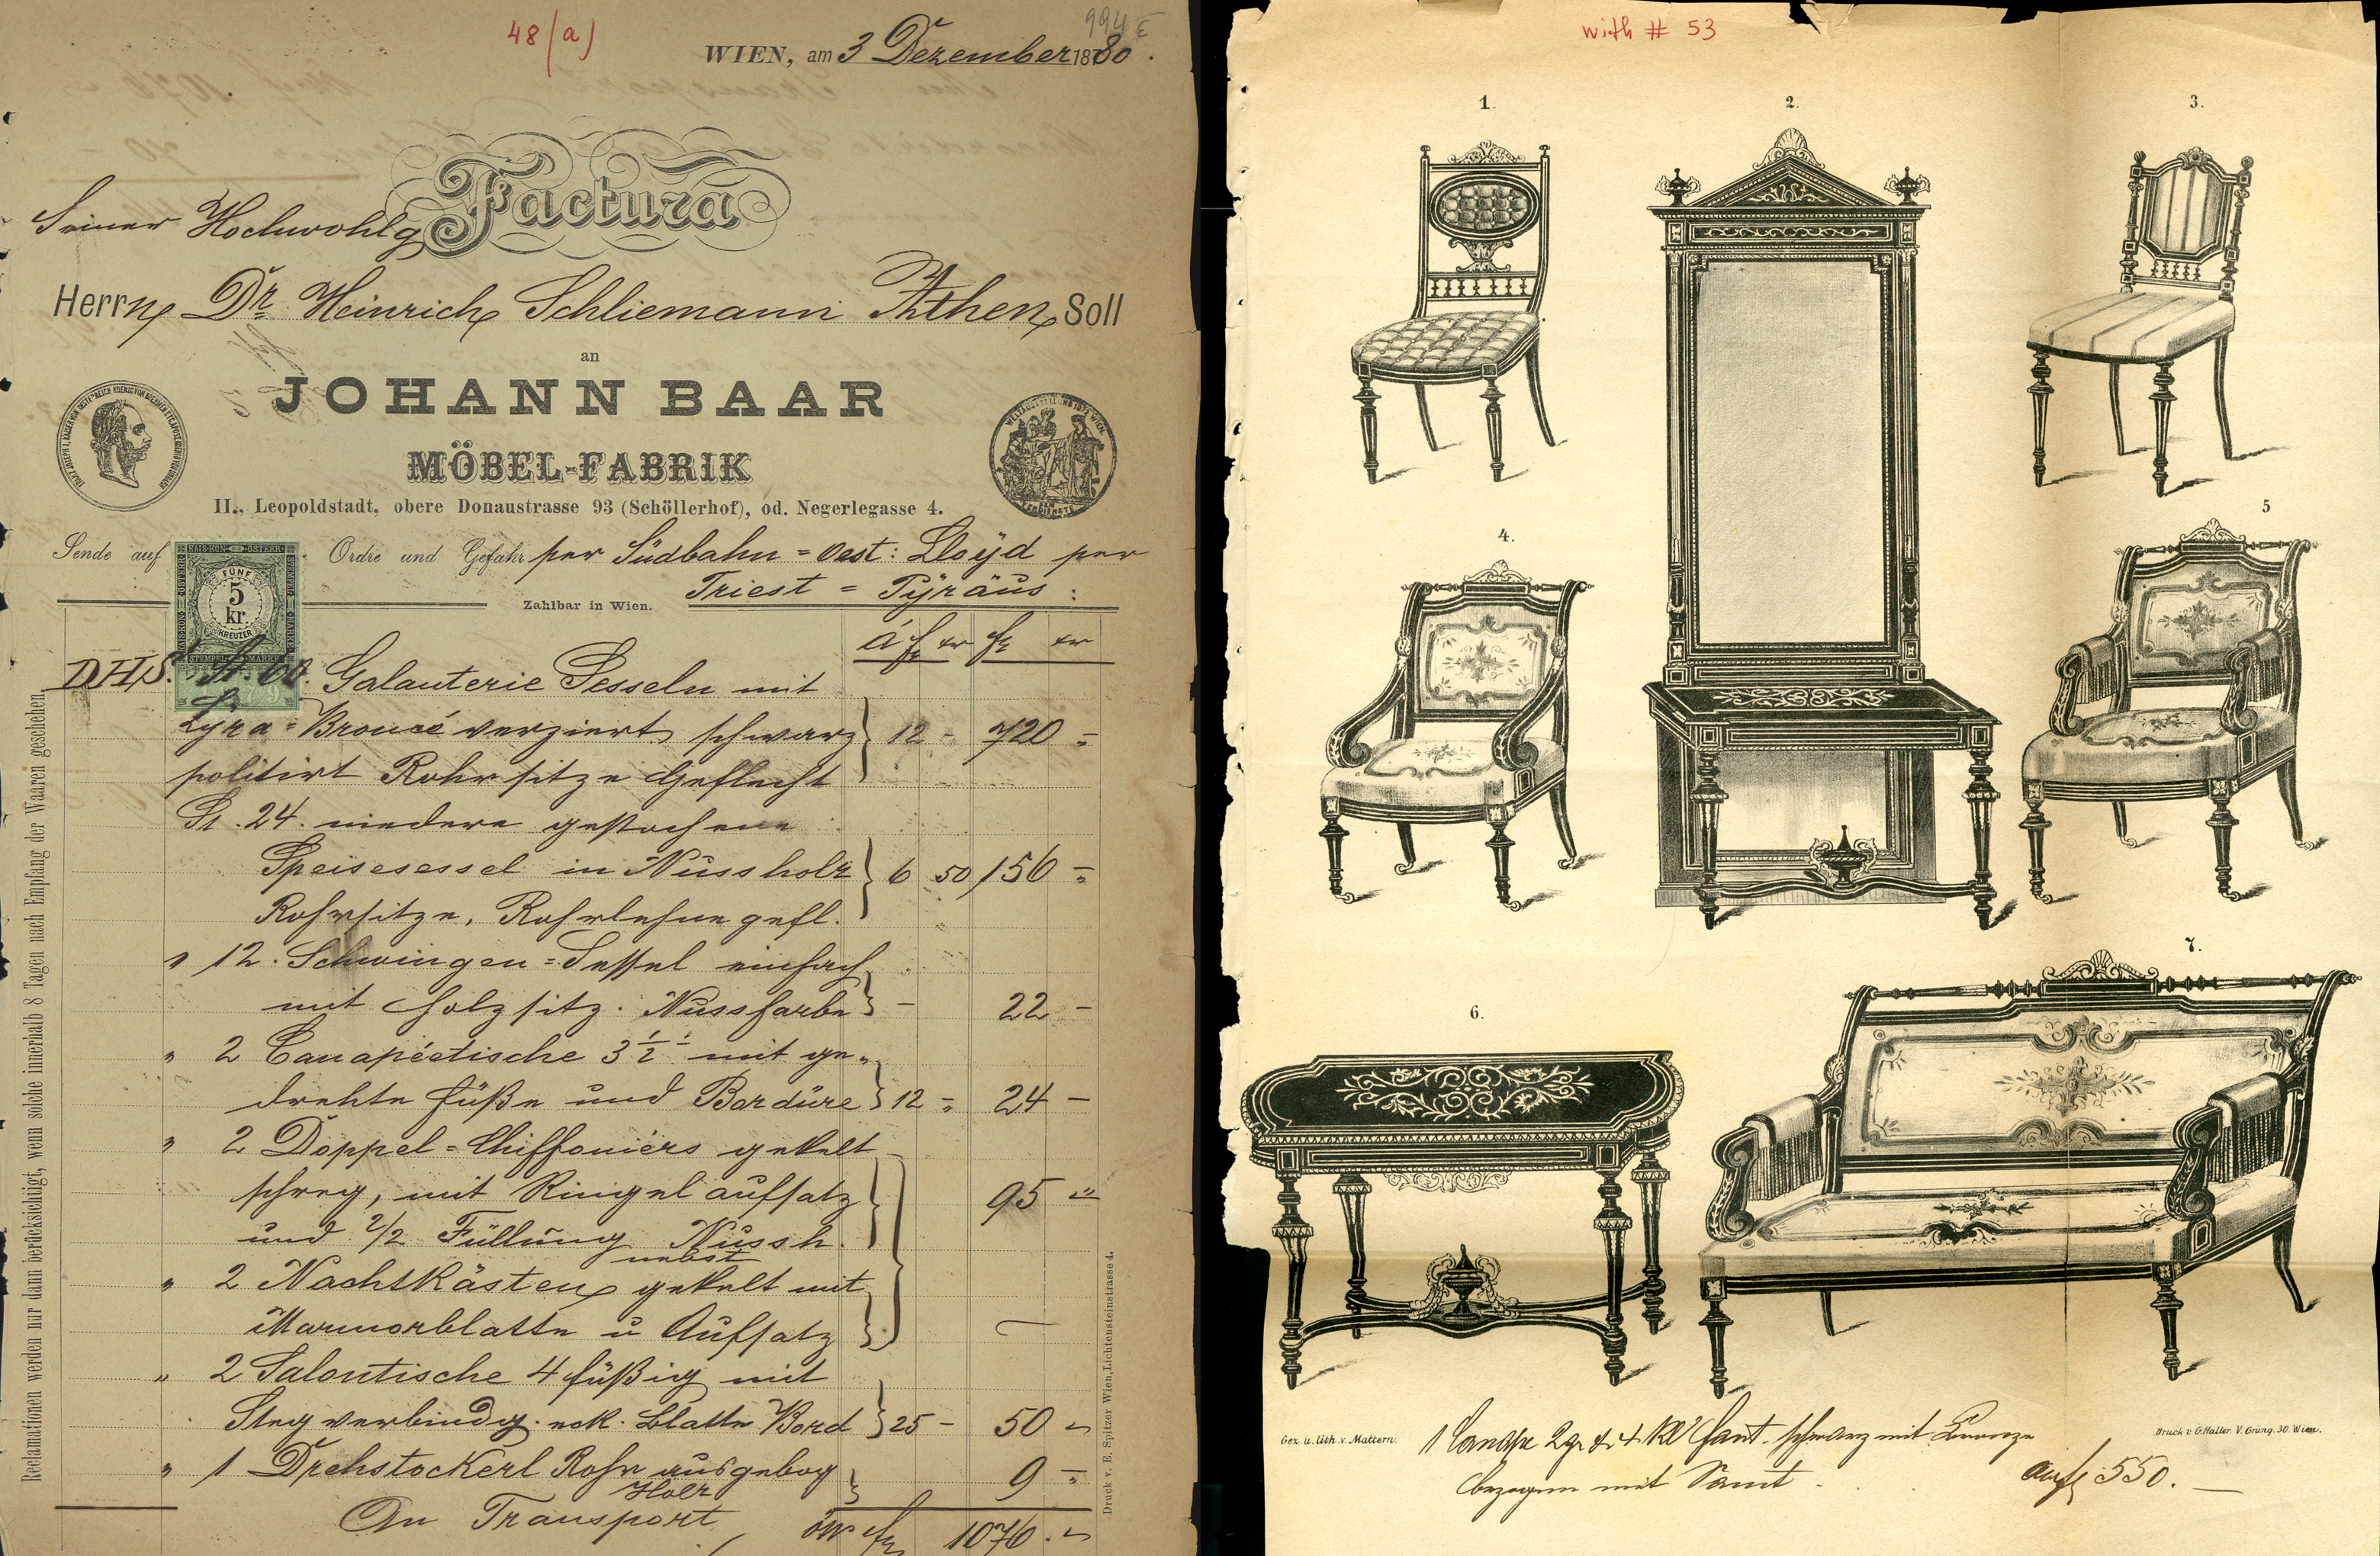 48(a)
994 E
WIEN, am 3 Dezember 1880.
Factura
Seiner Hochwohlg
Herrn Dr. Heinrich Schliemann Athen Soll
an
JOHANN BAAR
MÖBEL-FABRIK
II., Leopoldstadt, obere Donaustrasse 93 (Schöllerhof), od. Negerlegasse 4.
Sende auf Ordre und Gefahr per Südbahn = Oest: Lloÿd per
Triest = Pÿräus :
Zahlbar in Wien.
KAIS. KÖN. ÖSTERR.
FÜNF
5
kr.
KREUZER
STEMPEL MARKE
á fl kr fl kr
DHS. St. 60. Galanterie Sesseln mit
Lyra = Broncé verziert schwarz } 12 - 720 =
politirt Rohrsitze Geflecht
St. 24. niedere gestochene
Speisesessel in Nussholz } 6 50 156 =
Rohrsitze, Rohrlehne gefl.
" 12. Schwingen = Sessel einfach
mit Holzsitz. Nussfarbe } - 22 -
" 2 Canapéetische 3 1/2 ' mit ge=
drehte Füße und Bordüre } 12 = 24 -
" 2 Doppel = Chiffoniérs gekelt
schreg, mit Ringelaufsatz 95 "
und 2/2 Füllung Nussh.
nebst
" 2 Nachtkästen gekelt mit
Marmorblatte u Aufsatz
" 2 Salontische 4 füßig mit
Steg verbindg. eck. Blatte Bord } 25 - 50 "
" 1 Drehstockerl Rohr ausgebog 9 =
Holz
An Transport öW fl 1076. "
Reclamationen werden nur dann berücksichtigt, wenn solche innerhalb 8 Tagen nach Empfang der Waaren geschehen.
Druck v. E. Spitzer Wien, Lichtensteinstrasse 4.
with # 53
1.
2.
3.
4.
5
6.
7.
Gez. u. lith. v. Mattern.
Druck v. G. Haller V. Grüng. 30. Wien.
1 Canape 2 gr & 4 kl Fant. schwarz mit Bronze
bezogen mit Samt
auf fl 550.-